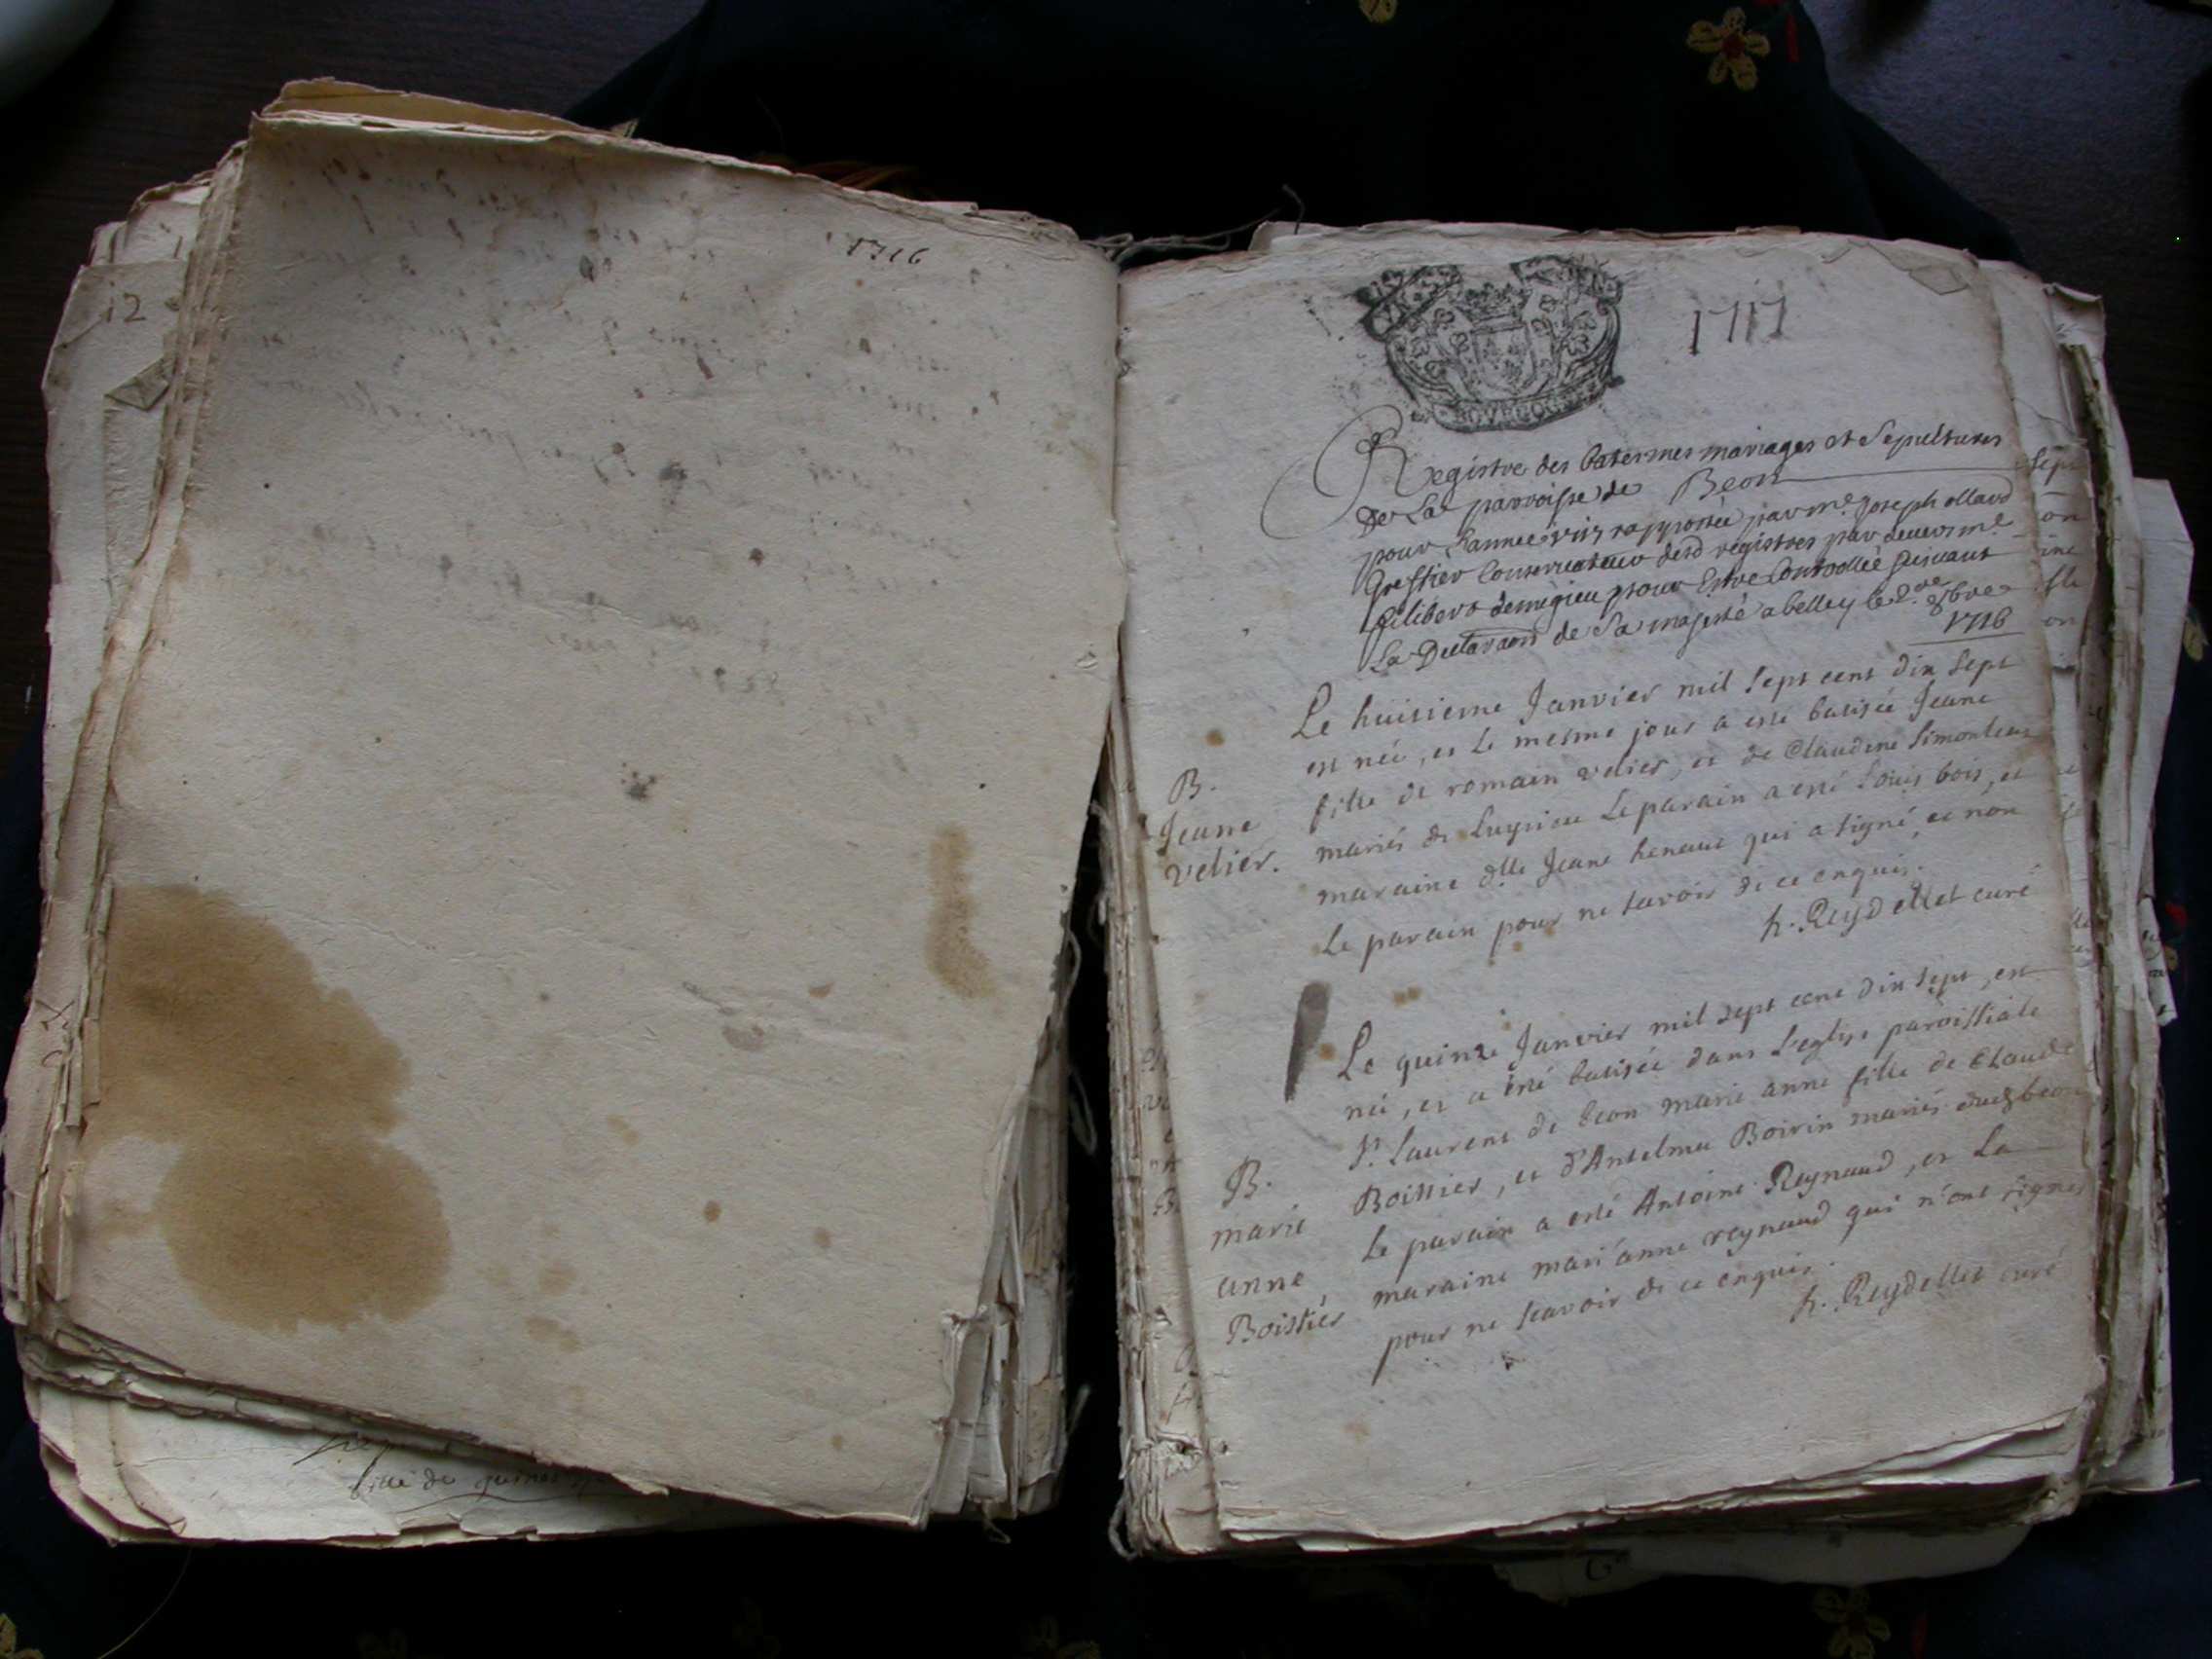 1716
12
ville de
1717
BOVRGOG
Registre des batesmes mariages et Sepultures
De La parroisse de Beon
pour Lannee 1717 rapportée par me Joseph ollard
Greffier Conservateur desd registres par devers me
filibert demigieu pour Estre Controollée suivant
La Declaraon de Sa majesté a belley le 2me 8bre
1716
Le huitieme Janvier mil sept cent dix sept
est née, et le mesme jour a esté batisée Jeane
fille de romain velier, et de Claudine
mariés de Luyrieu Le parain a esté Louis bois, et
maraine dlle Jeane qui a signé, et non
Le parain pour ne savoir de ce enquis.
h. Reydellet curé
B.
Jeane
velier.
Le quinze Janvier mil sept cent dix sept, est
née, et a esté batisée dans L'eglise paroissiale
St. Laurent de beon marie anne fille de Claude
Boissier, et d'Antelma Boirin mariés dud beon
Le parain a esté Antoine Reynaud, et La
maraine mari'anne reynaud qui n'ont signés
pour ne scavoir de ce enquis.
h. Reydellet curé
B.
marie
anne
Boissier